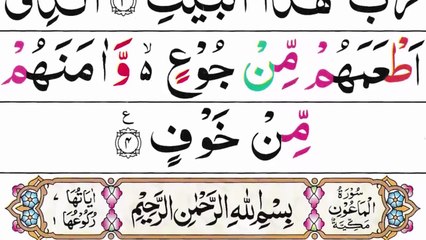 رَبَّ هٰذَا الْبَيْتِ ﴿۳﴾ الَّذِیْۤ
اَطْعَمَهُمْ مِّنْ جُوْعٍ ۙ۬ وَّاٰمَنَهُمْ
مِّنْ خَوْفٍ ﴿۴﴾ ع
سُوْرَةُ الْمَاعُوْنِ مَكِّيَّةٌ بِسْمِ اللّٰهِ الرَّحْمٰنِ الرَّحِيْمِ اٰيَاتُهَا ۷ رُكُوْعُهَا ۱